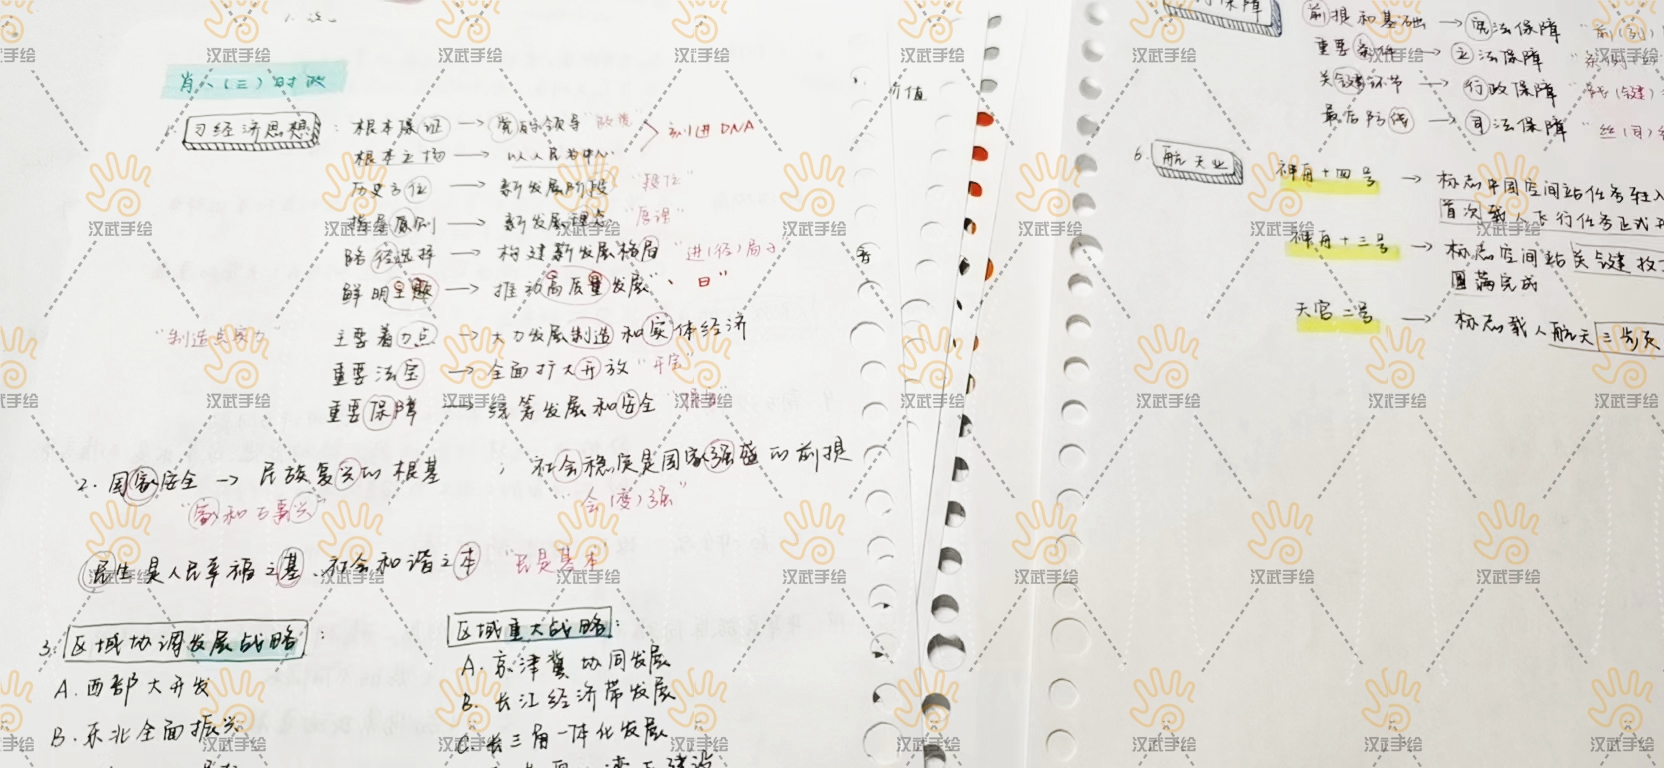 肖八(三)时政
1. 习经济思想：根本保证 → 党的领导 "政党" 刻进DNA
根本立场 → 以人民为中心
历史方位 → 新发展阶段 "段位"
指导原则 → 新发展理念 "原理"
路径选择 → 构建新发展格局 "进(径)局子"
鲜明主题 → 推动高质量发展 "日"
"制造点实力" 主要着力点 → 大力发展制造和实体经济
重要法宝 → 全面扩大开放 "开宝"
重要保障 → 统筹发展和安全
2. 国家安全 → 民族复兴的根基 ； 社会稳定是国家强盛的前提
"家和万事兴" "会(变)强"
民生是人民幸福之基、社会和谐之本 "民是基本"
3. 区域协调发展战略
A. 西部大开发
B. 东北全面振兴
区域重大战略：
A. 京津冀协同发展
B. 长江经济带发展
C. 长三角一体化发展
价值
前提和基础 → 宪法保障
重要条件 → 立法保障
关键环节 → 行政保障
最后防线 → 司法保障
6. 航天业
神舟十四号 → 标志中国空间站任务转入
首次载人飞行任务正式开
神舟十三号 → 标志空间站关键技
圆满完成
天宫二号 → 标志载人航天三步发
汉武手绘